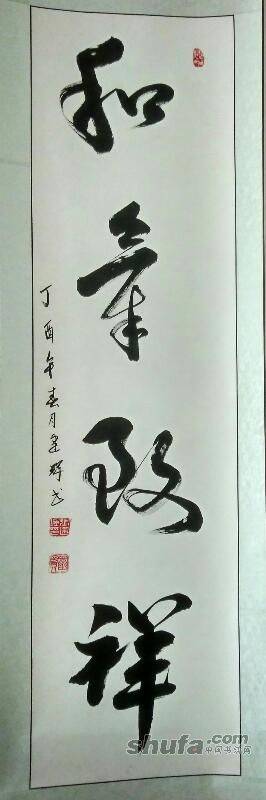 和氣致祥
丁酉年春月建輝书
shufa.com
中国书法网